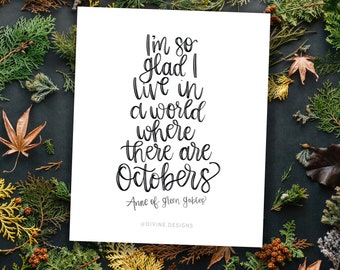 I'm so
glad I
live in
a world
where
there are
Octobers
Anne of Green Gables
@DIVINE.DESIGNS